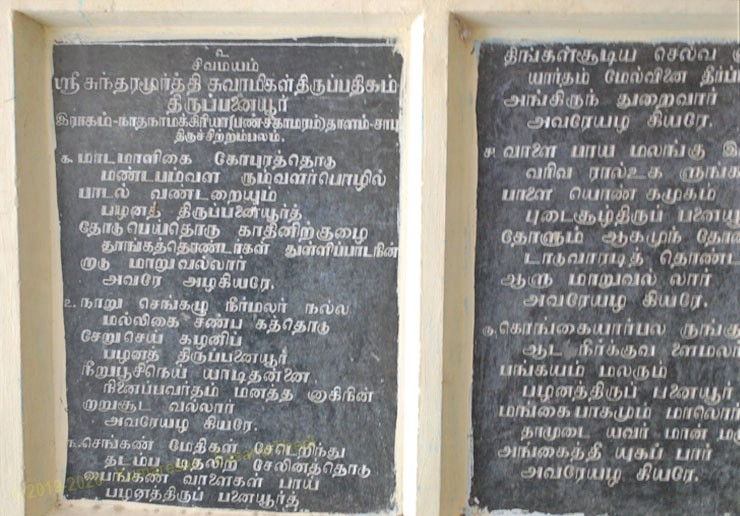 உ
சிவமயம்
ஸ்ரீ சுந்தரமூர்த்தி சுவாமிகள் திருப்பதிகம்
திருப்பனையூர்
இராகம்-நாதநாமக்கிரியா(பண்-சீகாமரம்)தாளம்-சாபு
திருச்சிற்றம்பலம்.
௧. மாடமாளிகை கோபுரத்தொடு
மண்டபம்வள ரும்வளர்பொழில்
பாடல் வண்டறையும்
பழனத் திருப்பனையூர்த்
தோடுபெய்தொரு காதினிற்குழை
தூங்கத்தொண்டர்கள் துள்ளிப்பாடநின்
றாடு மாறுவல்லார்
அவரே அழகியரே.
௨. நாறு செங்கழு நீர்மலர் நல்ல
மல்லிகை சண்ப கத்தொடு
சேறுசெய் கழனிப்
பழனத் திருப்பனையூர்
நீறுபூசிநெய் யாடிதன்னை
நினைப்பவர்தம் மனத்த னாகிநின்
றாறுசூட வல்லார்
அவரேயழ கியரே.
௩. செங்கண் மேதிகள் சேடெறிந்து
தடம்ப டிதலிற் சேலினத்தொடு
பைங்கண் வாளைகள் பாய்
பழனத்திருப் பனையூர்த்
திங்கள்சூடிய செல்வ
யார்தம் மேல்வினை தீர்ப்
அங்கிருந் துறைவார்
அவரேயழ கியரே.
௪. வாளை பாய மலங்கு
வரிவ ரால்உக ளுங்க
பாளை யொண் கமுகம்
புடைசூழ்திருப் பனையூ
தோளும் ஆகமுந் தோன்
டாடுவாரடித் தொண்ட
ஆளு மாறுவல் லார்
அவரேயழ கியரே.
௫. கொங்கையார்பல ருங்கு
ஆட நீர்க்குவ ளைமலர்
பங்கயம் மலரும்
பழனத்திருப் பனையூர்
மங்கைபாகமும் மாலொர்
தாமுடை யவர் மான் மழு
அங்கைத்தீ யுகப் பார்
அவரேயழ கியரே.